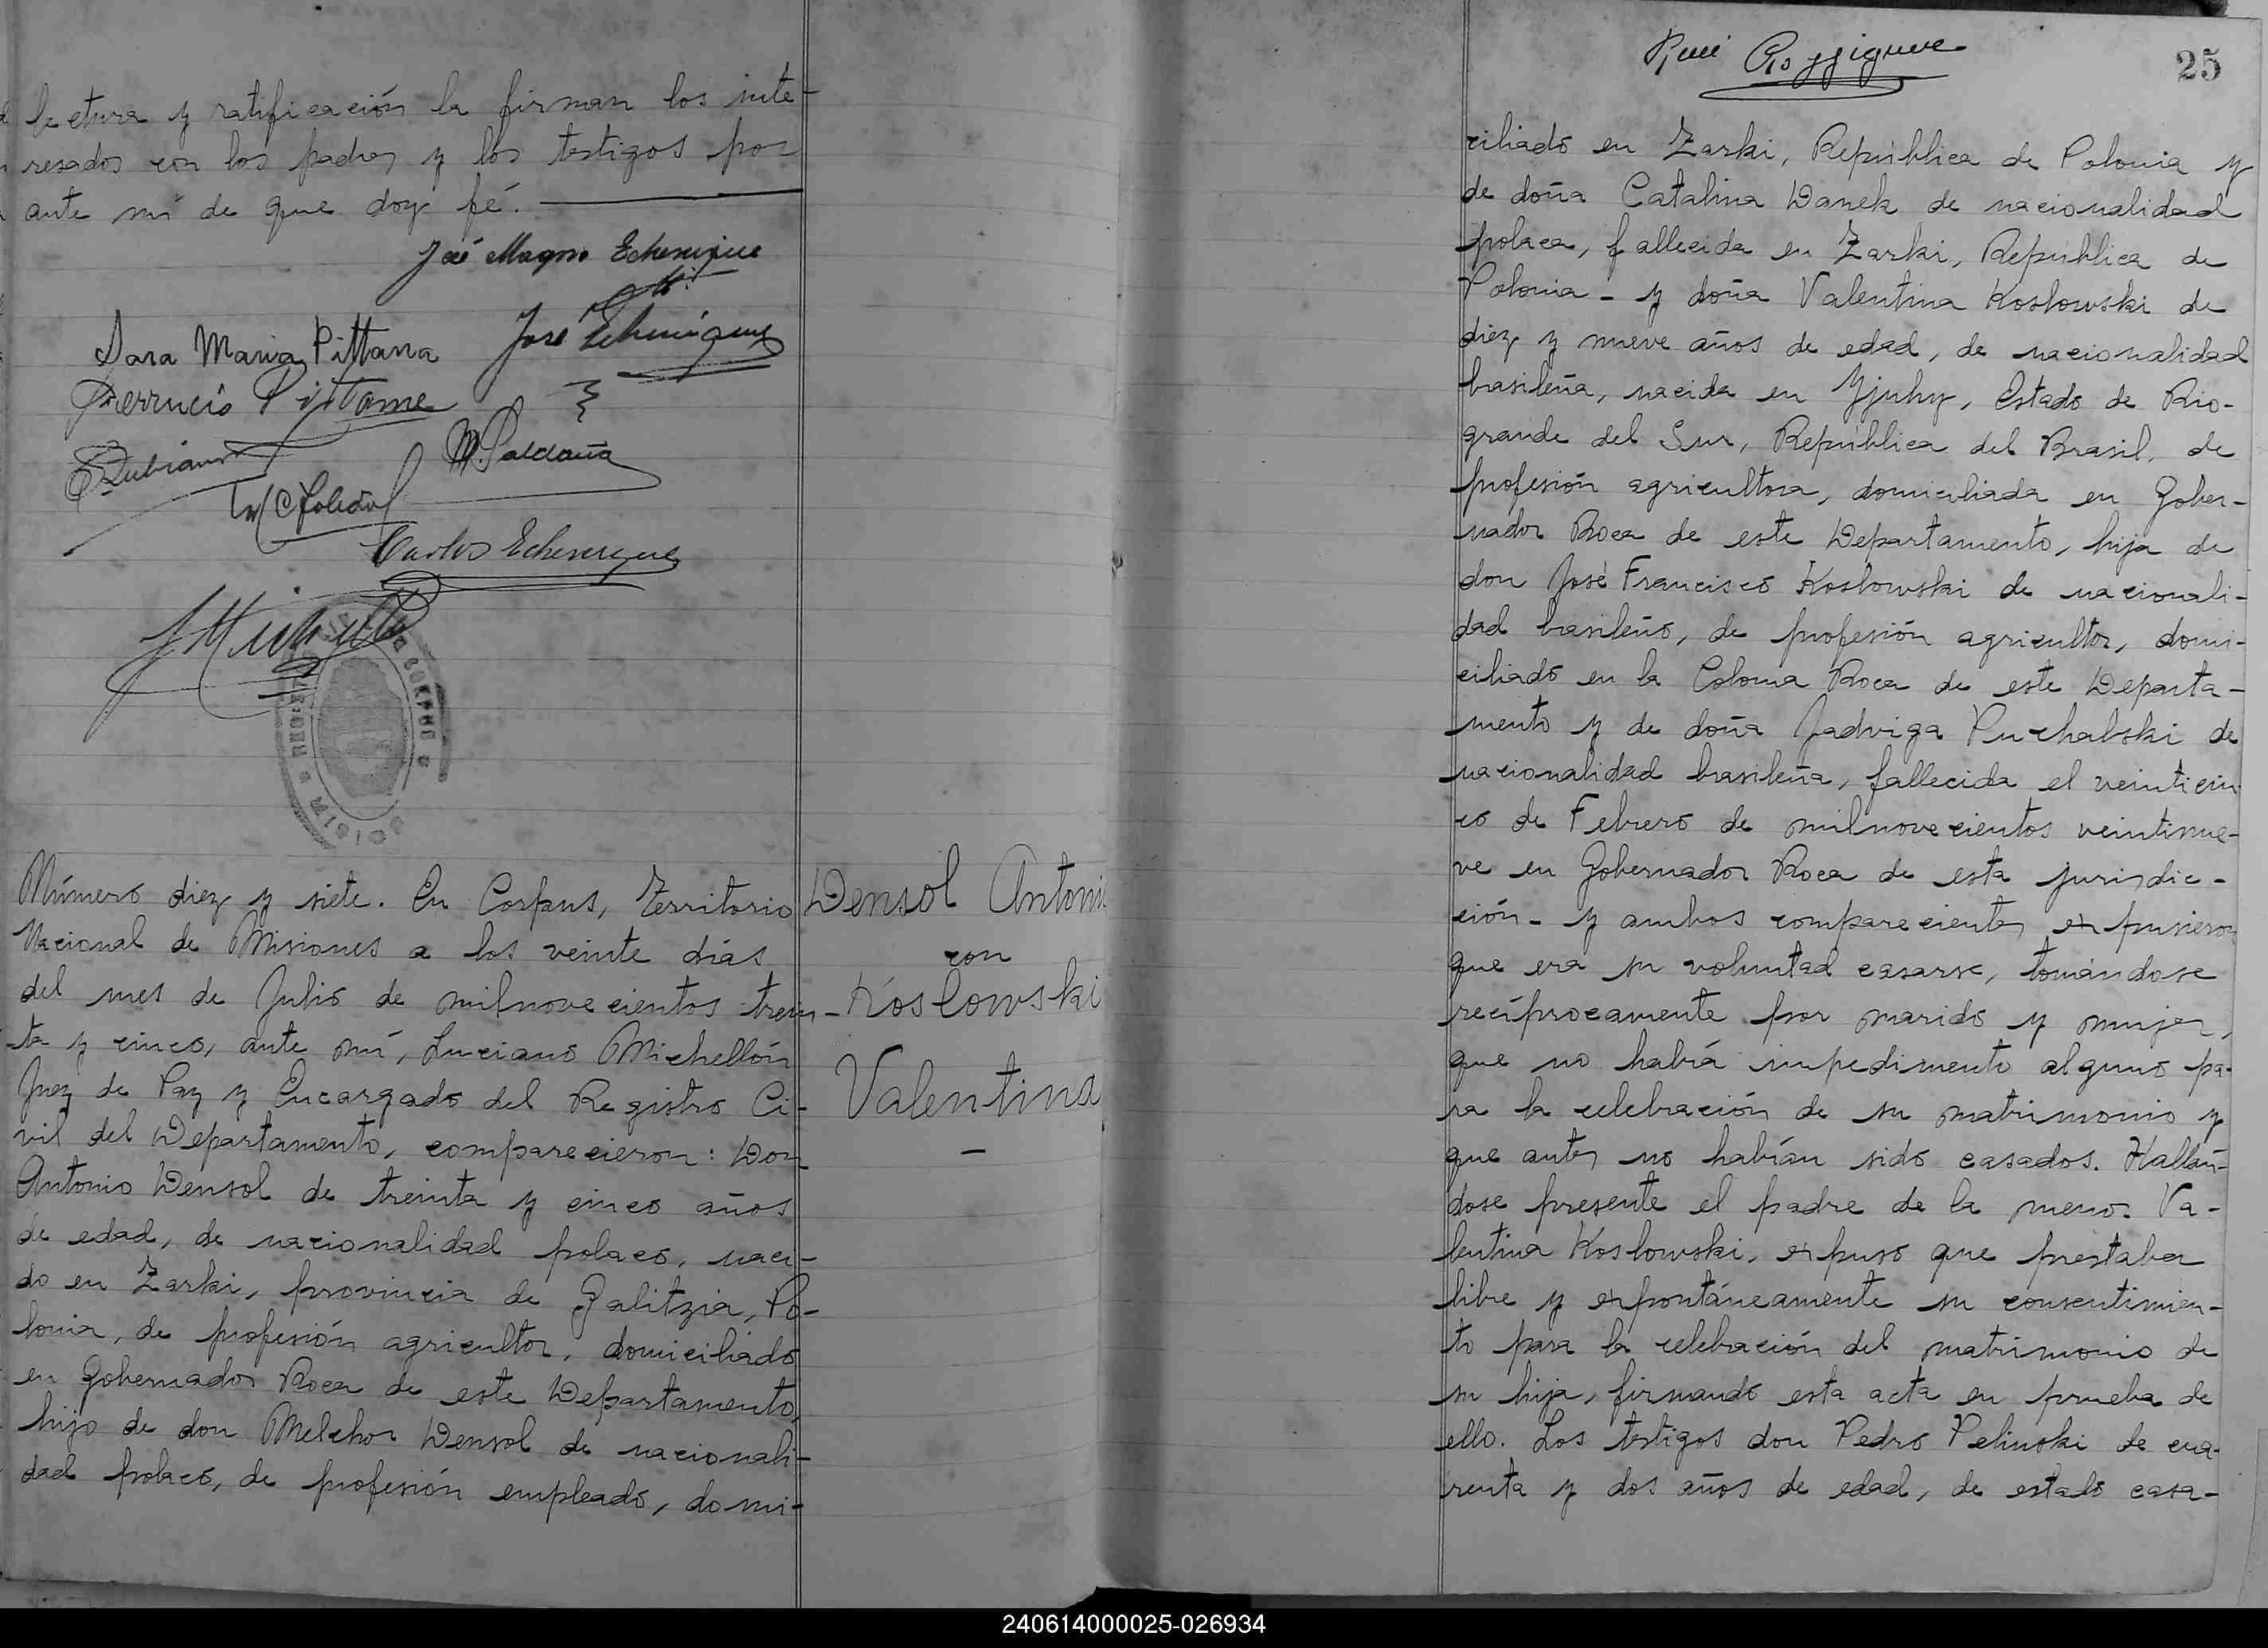 lectura y ratificación la firman los inte-
resados con los padres y los testigos por
ante mí de que doy fé.
José Magno Echenique
José Echenique
Sara Maria Pittana
Ferrucio Pittana
M. Saldaña
C Toledo
Carlos Echenique
Número diez y siete. En Corpus, Territorio
Nacional de Misiones a los veinte días
del mes de Julio de milnovecientos trein-
ta y cinco, ante mí, Luciano Michellón
Juez de Paz y Encargado del Registro Ci-
vil del Departamento, comparecieron: Don
Antonio Densol de treinta y cinco años
de edad, de nacionalidad polaco, naci-
do en Zarki, provincia de Galitzia, Po-
lonia, de profesión agricultor, domiciliado
en Gobernador Roca de este Departamento,
hijo de don Melchor Densol de nacionali-
dad polaco, de profesión empleado, domi-
Densol Antoni
con
Koslowski
Valentina
-
25
ciliado en Zarki, República de Polonia y
de doña Catalina Danek de nacionalidad
polaca, fallecida en Zarki, República de
Polonia - y doña Valentina Koslowski de
diez y nueve años de edad, de nacionalidad
brasileña, nacida en Yjuhy, Estado de Rio-
grande del Sur, República del Brasil, de
profesión agricultora, domiciliada en Gober-
nador Roca de este Departamento, hija de
don José Francisco Koslowski de nacionali-
dad brasileño, de profesión agricultor, domi-
ciliado en la Colonia Roca de este Departa-
mento y de doña Jadviga Puchalski de
nacionalidad brasileña, fallecida el veinticin
co de Febrero de milnovecientos veintinue-
ve en Gobernador Roca de esta jurisdic-
ción - y ambos comparecientes expusieron
que era su voluntad casarse, tomándose
recíprocamente por marido y mujer,
que no había impedimento alguno pa-
ra la celebración de su matrimonio y
que antes no habían sido casados. Hallán-
dose presente el padre de la menor Va-
lentina Koslowski, expuso que prestaba
libre y expontáneamente su consentimien-
to para la celebración del matrimonio de
su hija, firmando esta acta en prueba de
ello. Los testigos don Pedro Pelinski de cua-
renta y dos años de edad, de estado casa-
240614000025-026934